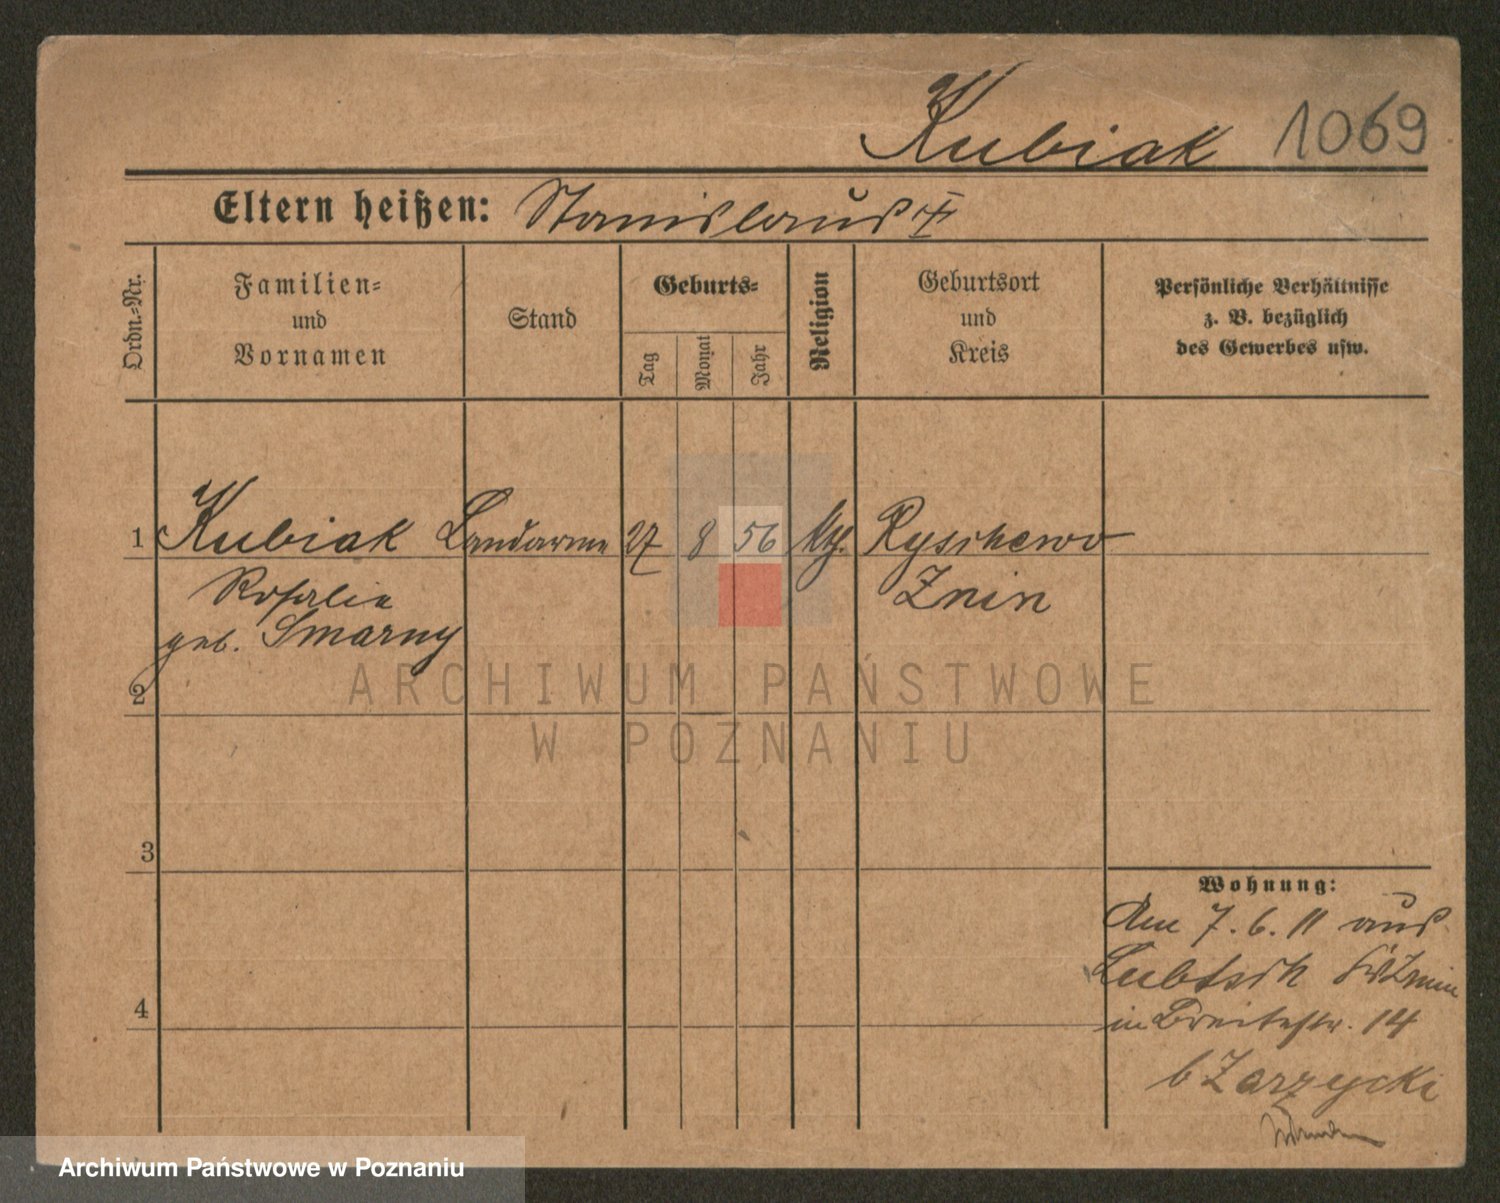 Kubiak 1069
Eltern heißen: Stanislaus †
Ordn.-Nr.
Familien-
und
Vornamen
Stand
Geburts-
Tag
Monat
Jahr
Religion
Geburtsort
und
Kreis
Persönliche Verhältnisse
z. B. bezüglich
des Gewerbes usw.
1 Kubiak Landarme 27 8 56 kth. Ryschewo
Rosalie Znin
geb. Smarny
2
3
4
Wohnung:
Am 7. 6. 11 aus
Lubtsch Znin
in Breitestr. 14
b Zarzycki
ARCHIWUM PAŃSTWOWE
W POZNANIU
Archiwum Państwowe w Poznaniu